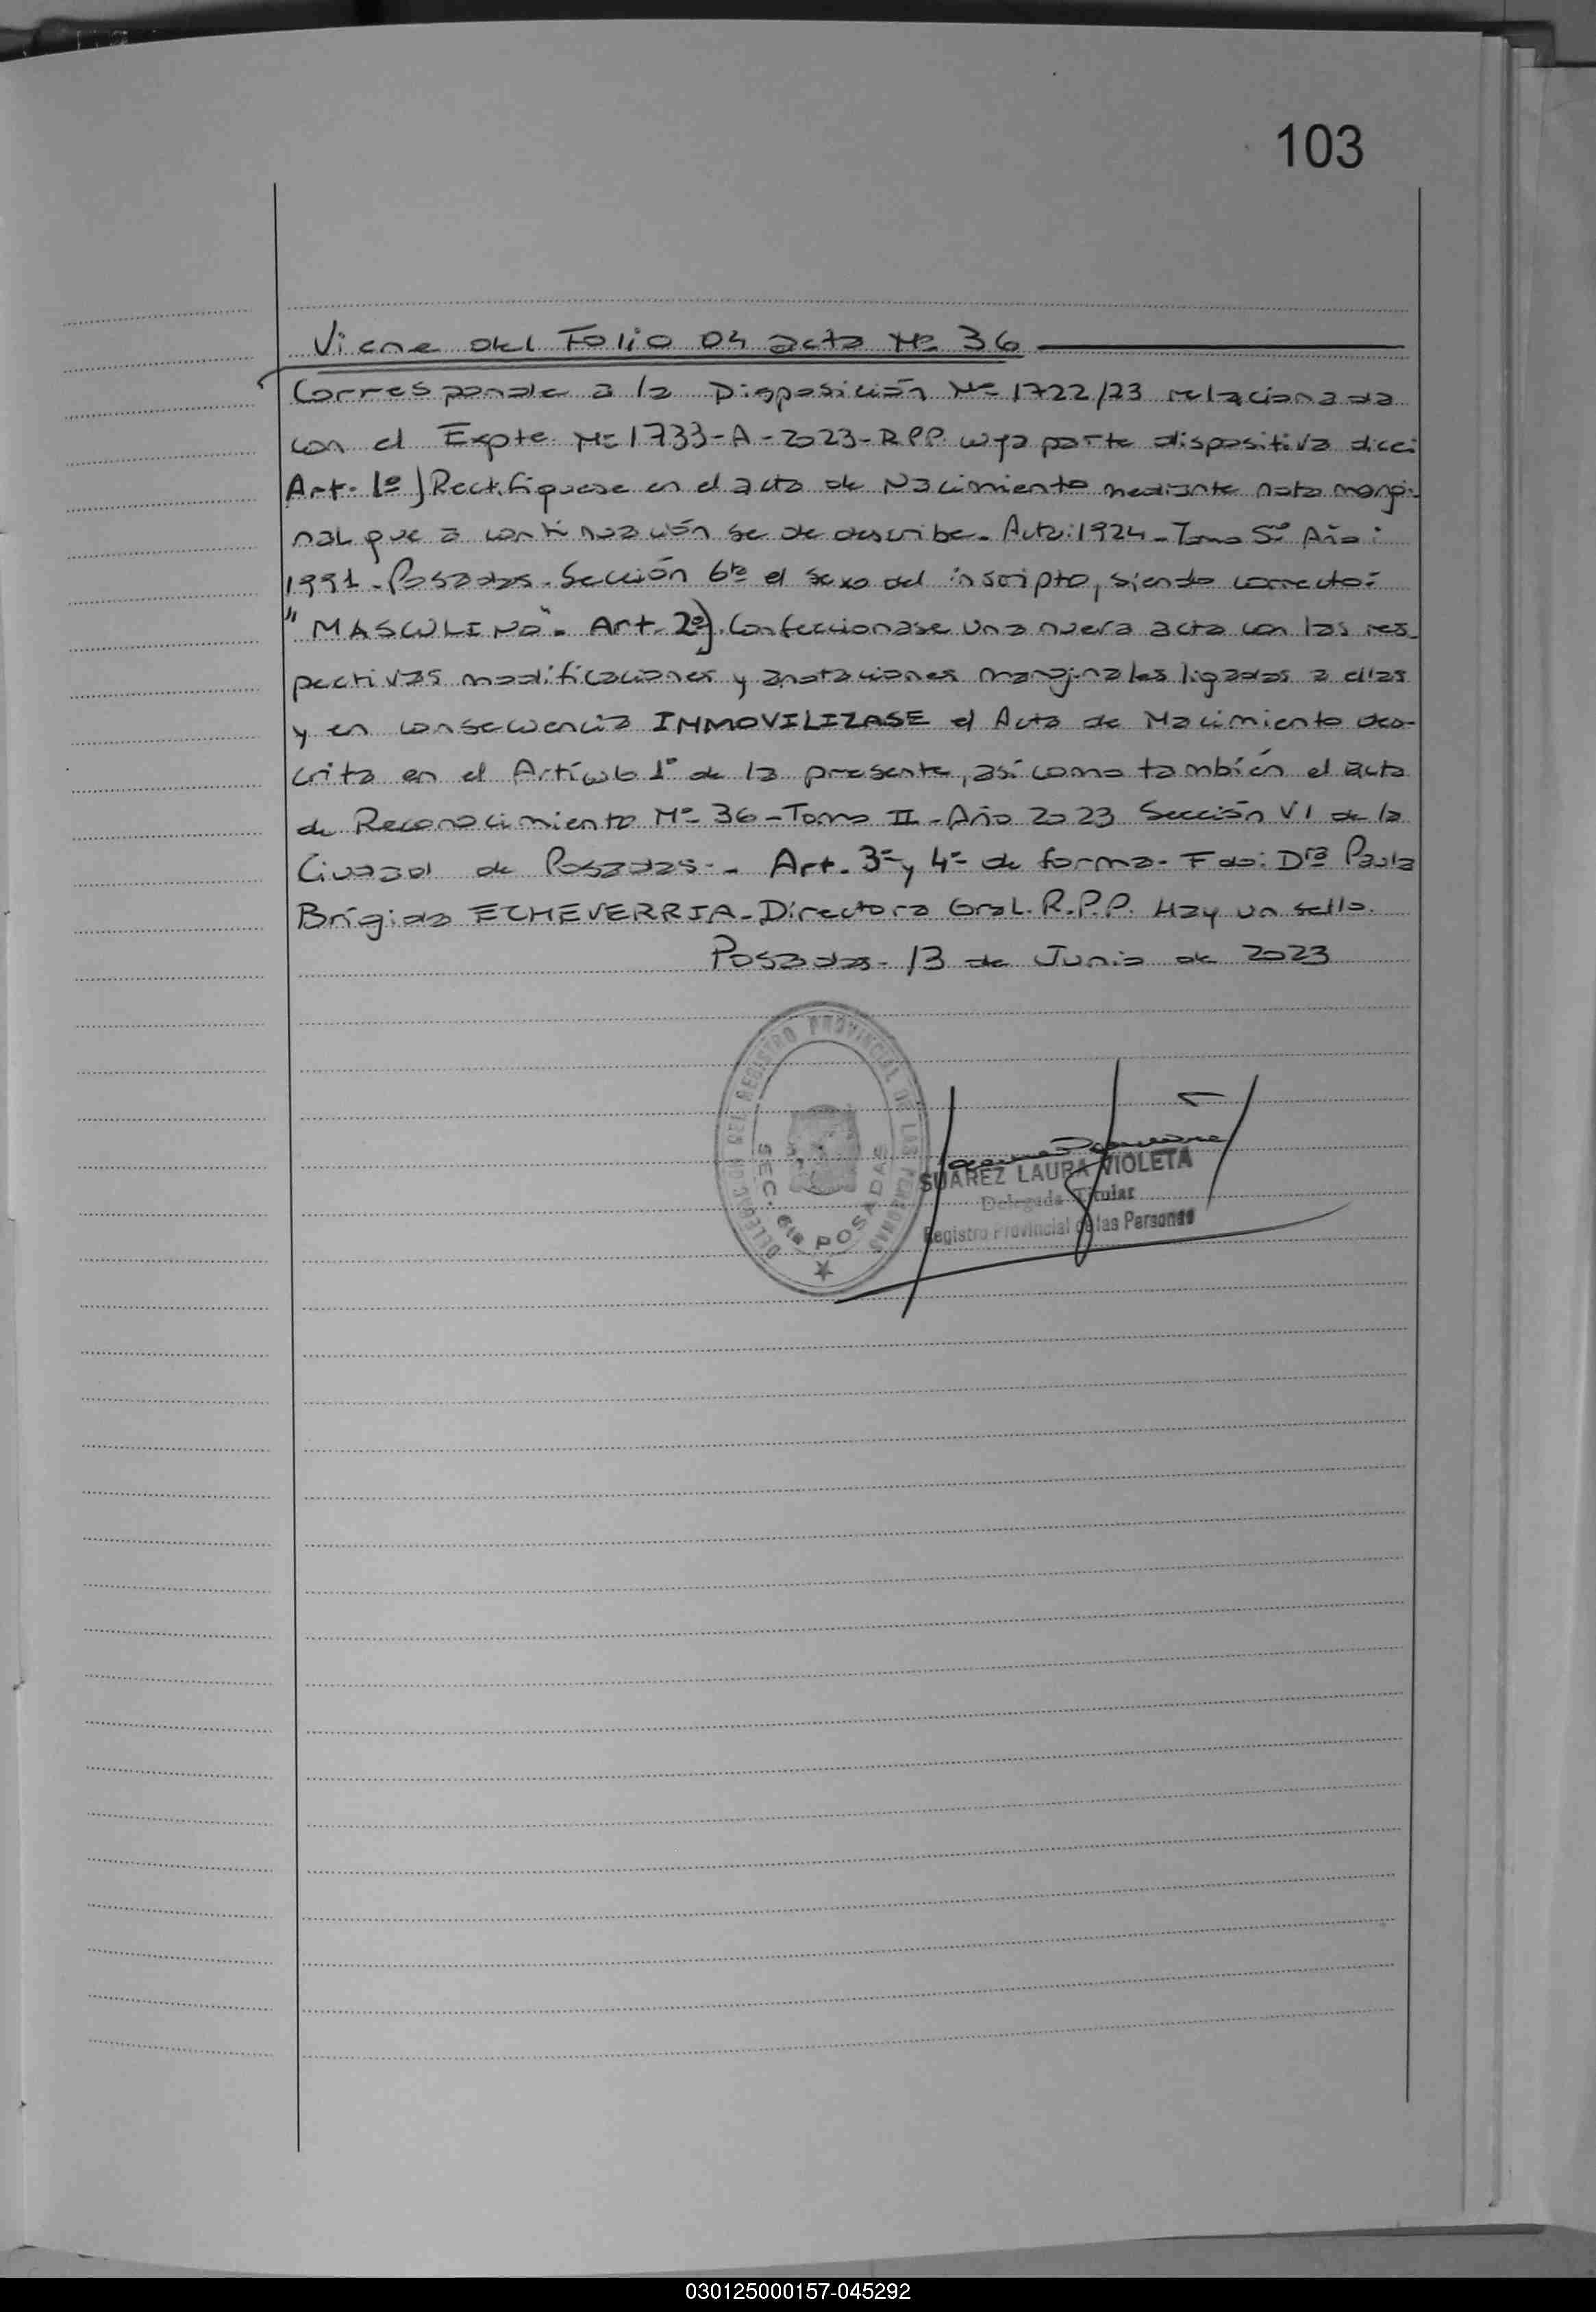 103
Viene del Folio 04 acta Nº 36
Corresponde a la Disposición Nº 1722/23 relacionada
con el Expte Nº 1733-A-2023-RPP. cuya parte dispositiva dice:
Art. 1º) Rectifiquese en el acta de Nacimiento mediante nota margi-
nal que a continuación se de describe. Acta: 1924 - Tomo 5º Año:
1991 - Posadas - Sección 6ta el sexo del inscripto, siendo correcto:
"MASCULINO". Art. 2º). Confeccionase una nueva acta con las res-
pectivas modificaciones y anotaciones marginales ligadas a ellas
y en consecuencia INMOVILIZASE el Acta de Nacimiento des-
crita en el Artículo 1º de la presente, así como también el acta
de Reconocimiento Nº 36 - Tomo II - Año 2023 Sección VI de la
Ciudad de Posadas. - Art. 3º y 4º de forma - Fdo: Dra Paula
Brígida ECHEVERRIA - Directora Gral. R.P.P. Hay un sello.
Posadas - 13 de Junio de 2023
DELEGACION DEL REGISTRO PROVINCIAL DE LAS PERSONAS
SEC. 6ta POSADAS
SUAREZ LAURA VIOLETA
Delegada Titular
Registro Provincial de las Personas
030125000157-045292